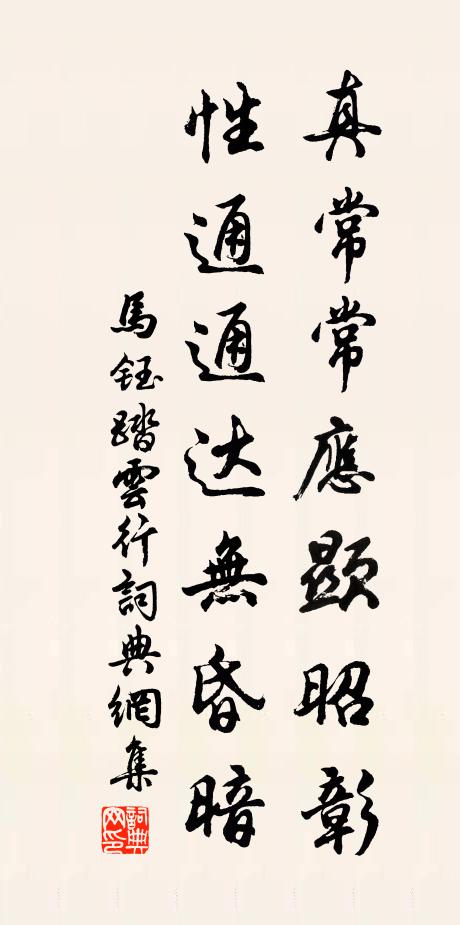 真常常應顯昭彰
性通通达無昏暗
馬鈺踏雲行詞典網集
詞典網印